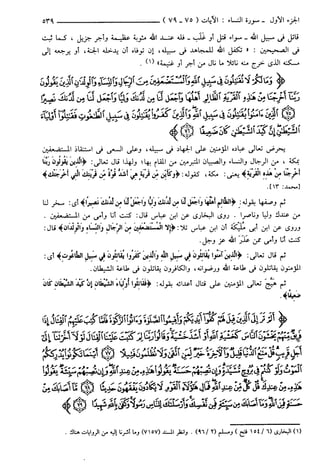 الجزء الأول ـ سورة النساء : الآيات ( ٧٥ ـ ٧٩ ) ٥٣٩
قاتل فى سبيل الله ـ سواء قتل أو غَلَب ـ فله عند الله مثوبة عظيمة وأجر جزيل ، كما ثبت
فى الصحيحين : « تكفل الله للمجاهد فى سبيله ، إن توفاه أن يدخله الجنة ، أو يرجعه إلى
مسكنه الذى خرج منه نائلا ما نال من أجر أو غنيمة » (١) .
﴿ وَمَا لَكُمْ لَا تُقَاتِلُونَ فِي سَبِيلِ اللَّهِ وَالْمُسْتَضْعَفِينَ مِنَ الرِّجَالِ وَالنِّسَاءِ وَالْوِلْدَانِ الَّذِينَ يَقُولُونَ
رَبَّنَا أَخْرِجْنَا مِنْ هَذِهِ الْقَرْيَةِ الظَّالِمِ أَهْلُهَا وَاجْعَل لَّنَا مِن لَّدُنكَ وَلِيًّا وَاجْعَل لَّنَا مِن لَّدُنكَ نَصِيرًا
﴿٧٥﴾ الَّذِينَ آمَنُوا يُقَاتِلُونَ فِي سَبِيلِ اللَّهِ وَالَّذِينَ كَفَرُوا يُقَاتِلُونَ فِي سَبِيلِ الطَّاغُوتِ فَقَاتِلُوا أَوْلِيَاءَ
الشَّيْطَانِ إِنَّ كَيْدَ الشَّيْطَانِ كَانَ ضَعِيفًا ﴿٧٦﴾
يحرض تعالى عباده المؤمنين على الجهاد فى سبيله ، وعلى السعى فى استنقاذ المستضعفين
بمكة ، من الرجال والنساء والصبيان المتبرمين من المقام بها؛ ولهذا قال تعالى: ﴿الَّذِينَ يَقُولُونَ رَبَّنَا
أَخْرِجْنَا مِنْ هَذِهِ الْقَرْيَةِ﴾ يعنى: مكة، كقوله: ﴿وَكَأَيِّن مِّن قَرْيَةٍ هِيَ أَشَدُّ قُوَّةً مِّن قَرْيَتِكَ الَّتِي أَخْرَجَتْكَ﴾
[محمد: ١٣].
ثم وصفها بقوله: ﴿الظَّالِمِ أَهْلُهَا وَاجْعَل لَّنَا مِن لَّدُنكَ وَلِيًّا وَاجْعَل لَّنَا مِن لَّدُنكَ نَصِيرًا﴾ أى: سخر لنا
من عندك وليا وناصرا . روى البخارى عن ابن عباس قال: كنت أنا وأمى من المستضعفين .
وروى عن ابن أبى مُلَيْكَة أن ابن عباس تلا: ﴿إِلَّا الْمُسْتَضْعَفِينَ مِنَ الرِّجَالِ وَالنِّسَاءِ وَالْوِلْدَانِ﴾ قال:
كنت أنا وأمى ممن عَذَر الله عز وجل.
ثم قال تعالى: ﴿الَّذِينَ آمَنُوا يُقَاتِلُونَ فِي سَبِيلِ اللَّهِ وَالَّذِينَ كَفَرُوا يُقَاتِلُونَ فِي سَبِيلِ الطَّاغُوتِ﴾ أى:
المؤمنون يقاتلون فى طاعة الله ورضوانه، والكافرون يقاتلون فى طاعة الشيطان.
ثم هَيَّج تعالى المؤمنين على قتال أعدائه بقوله: ﴿فَقَاتِلُوا أَوْلِيَاءَ الشَّيْطَانِ إِنَّ كَيْدَ الشَّيْطَانِ كَانَ
ضَعِيفًا﴾.
﴿ أَلَمْ تَرَ إِلَى الَّذِينَ قِيلَ لَهُمْ كُفُّوا أَيْدِيَكُمْ وَأَقِيمُوا الصَّلَاةَ وَآتُوا الزَّكَاةَ فَلَمَّا كُتِبَ عَلَيْهِمُ الْقِتَالُ إِذَا
فَرِيقٌ مِّنْهُمْ يَخْشَوْنَ النَّاسَ كَخَشْيَةِ اللَّهِ أَوْ أَشَدَّ خَشْيَةً وَقَالُوا رَبَّنَا لِمَ كَتَبْتَ عَلَيْنَا الْقِتَالَ لَوْلَا أَخَّرْتَنَا إِلَى
أَجَلٍ قَرِيبٍ قُلْ مَتَاعُ الدُّنْيَا قَلِيلٌ وَالْآخِرَةُ خَيْرٌ لِّمَنِ اتَّقَى وَلَا تُظْلَمُونَ فَتِيلًا ﴿٧٧﴾ أَيْنَمَا تَكُونُوا يُدْرِككُّمُ
الْمَوْتُ وَلَوْ كُنتُمْ فِي بُرُوجٍ مُّشَيَّدَةٍ وَإِن تُصِبْهُمْ حَسَنَةٌ يَقُولُوا هَذِهِ مِنْ عِندِ اللَّهِ وَإِن تُصِبْهُمْ سَيِّئَةٌ يَقُولُوا
هَذِهِ مِنْ عِندِكَ قُلْ كُلٌّ مِّنْ عِندِ اللَّهِ فَمَالِ هَؤُلَاءِ الْقَوْمِ لَا يَكَادُونَ يَفْقَهُونَ حَدِيثًا ﴿٧٨﴾ مَّا أَصَابَكَ مِنْ
حَسَنَةٍ فَمِنَ اللَّهِ وَمَا أَصَابَكَ مِن سَيِّئَةٍ فَمِن نَّفْسِكَ وَأَرْسَلْنَاكَ لِلنَّاسِ رَسُولًا وَكَفَى بِاللَّهِ شَهِيدًا ﴿٧٩﴾
(١) البخارى ( ٦ / ١٥٤ فتح ) ومسلم (٢ / ٩٦) . وانظر المسند (٧١٥٧) وما أشرنا إليه من الروايات هناك .